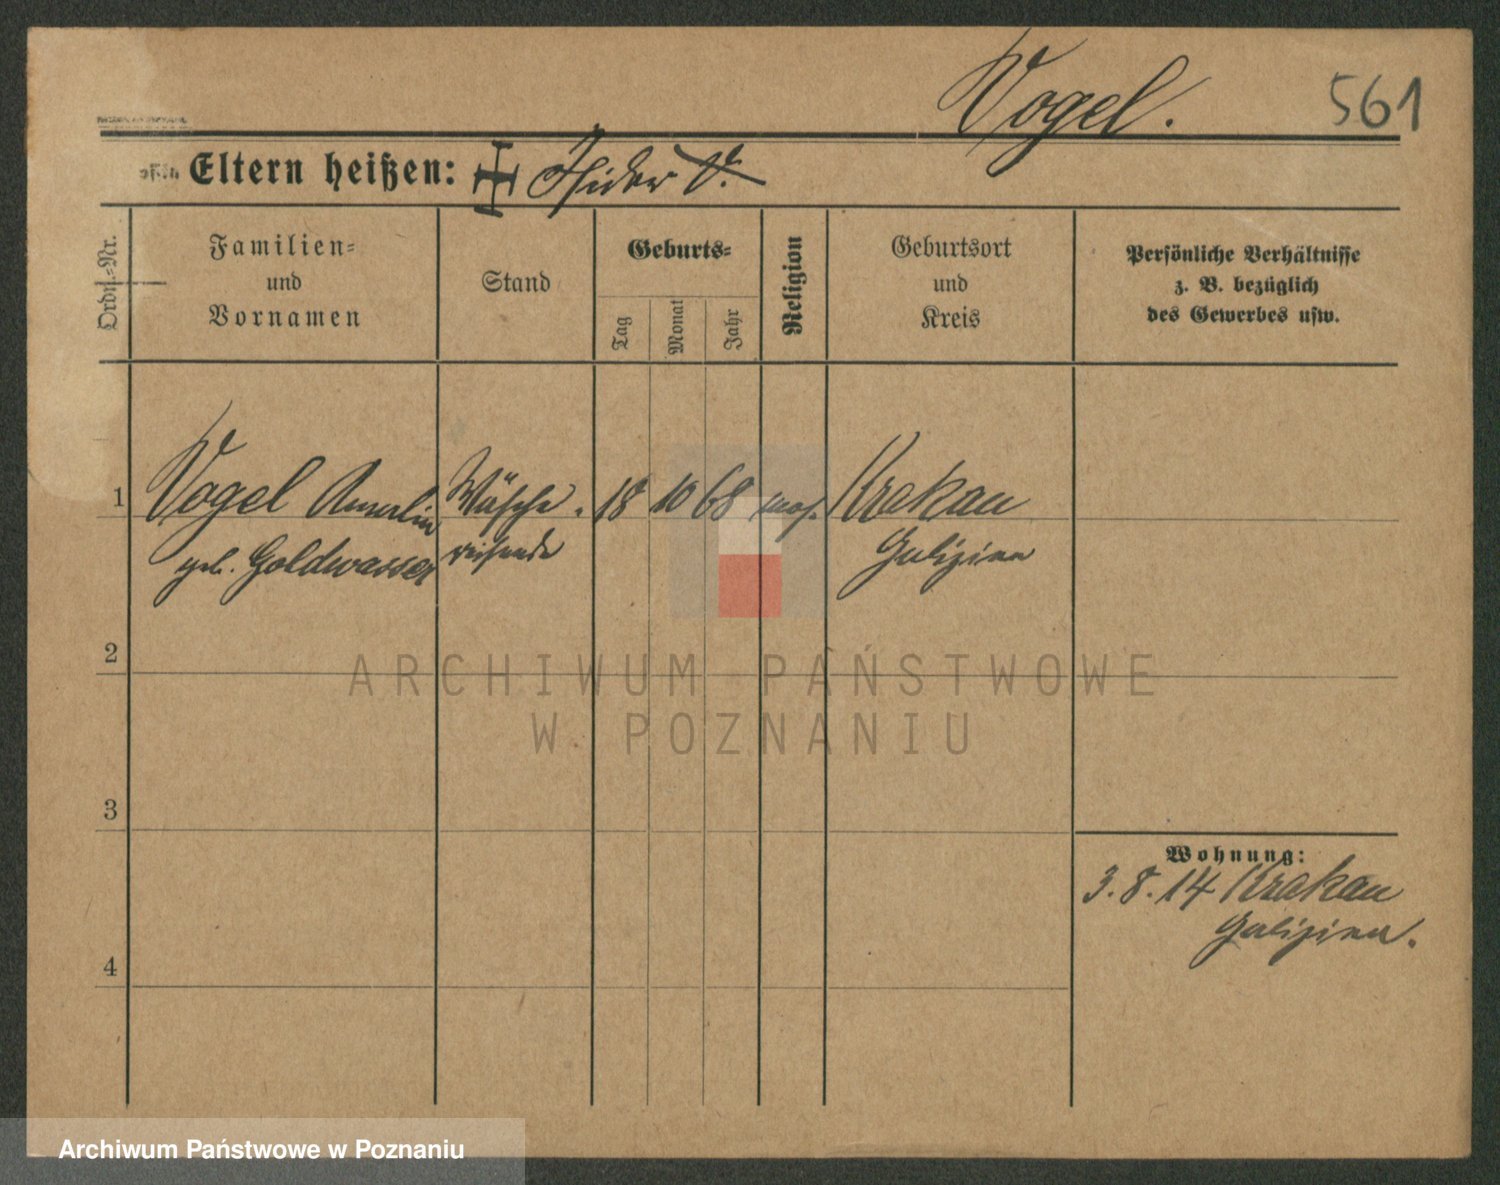 Vogel. 561
Eltern heißen: Isidor V.
Ordn.-Nr.
Familien-
und
Vornamen
Stand
Geburts-
Tag
Monat
Jahr
Religion
Geburtsort
und
Kreis
Persönliche Verhältnisse
z. B. bezüglich
des Gewerbes usw.
1 Vogel Wäsche- 18 10 68 mos. Krakau
geb. Goldwasser reisende Galizien
2
3
4
Wohnung:
3.8.14 Krakau
Galizien.
ARCHIWUM PAŃSTWOWE
W POZNANIU
Archiwum Państwowe w Poznaniu